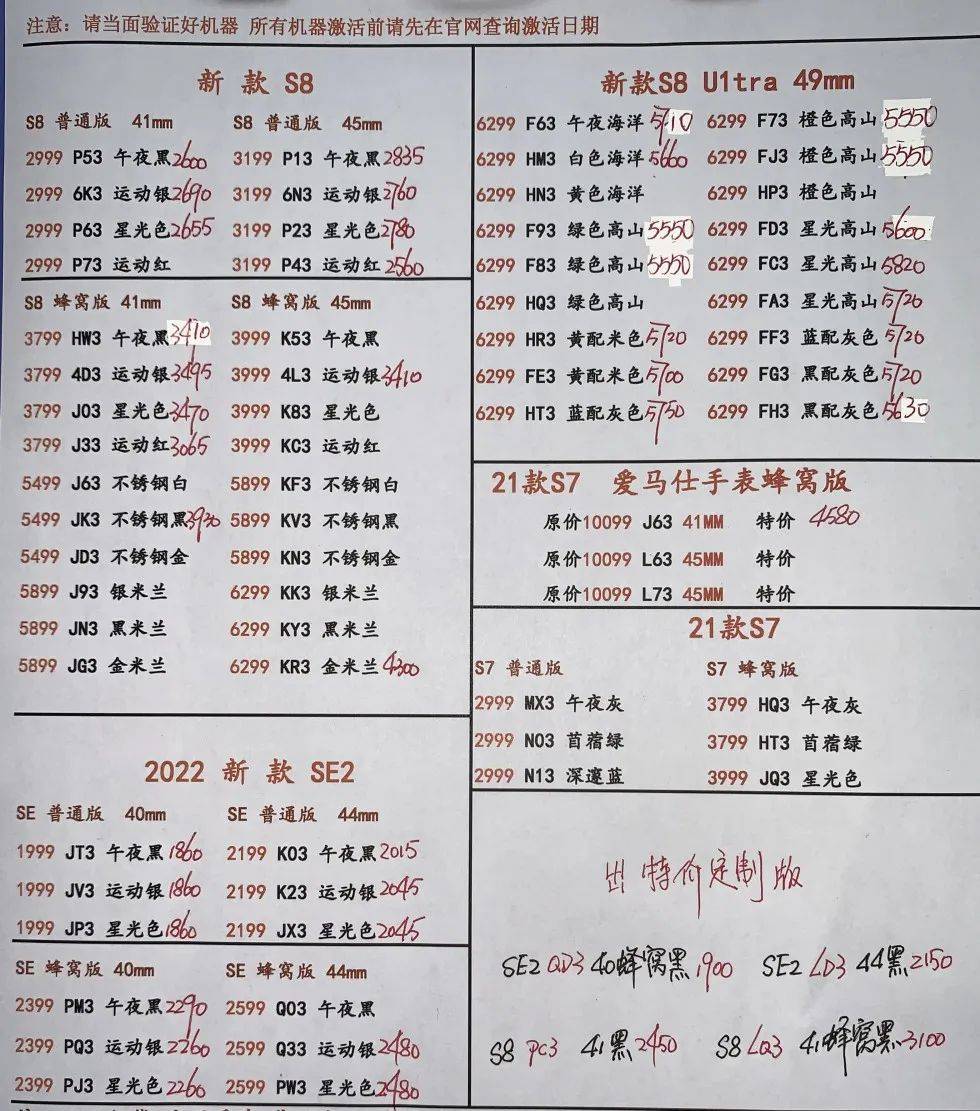 注意：请当面验证好机器 所有机器激活前请先在官网查询激活日期
新 款 S8
S8 普通版 41mm
2999 P53 午夜黑 2600
2999 6K3 运动银 2690
2999 P63 星光色 2655
2999 P73 运动红
S8 普通版 45mm
3199 P13 午夜黑 2835
3199 6N3 运动银 2760
3199 P23 星光色 2780
3199 P43 运动红 2560
S8 蜂窝版 41mm
3799 HW3 午夜黑 3410
3799 4D3 运动银 3495
3799 J03 星光色 3470
3799 J33 运动红 3065
5499 J63 不锈钢白
5499 JK3 不锈钢黑 3930
5499 JD3 不锈钢金
5899 J93 银米兰
5899 JN3 黑米兰
5899 JG3 金米兰
S8 蜂窝版 45mm
3999 K53 午夜黑
3999 4L3 运动银 3410
3999 K83 星光色
3999 KC3 运动红
5899 KF3 不锈钢白
5899 KV3 不锈钢黑
5899 KN3 不锈钢金
6299 KK3 银米兰
6299 KY3 黑米兰
6299 KR3 金米兰 4300
2022 新 款 SE2
SE 普通版 40mm
1999 JT3 午夜黑 1860
1999 JV3 运动银 1860
1999 JP3 星光色 1860
SE 普通版 44mm
2199 K03 午夜黑 2015
2199 K23 运动银 2045
2199 JX3 星光色 2045
SE 蜂窝版 40mm
2399 PM3 午夜黑 2290
2399 PQ3 运动银 2260
2399 PJ3 星光色 2260
SE 蜂窝版 44mm
2599 Q03 午夜黑
2599 Q33 运动银 2480
2599 PW3 星光色 2480
新款S8 U1tra 49mm
6299 F63 午夜海洋 5710
6299 HM3 白色海洋 5660
6299 HN3 黄色海洋
6299 F93 绿色高山 5550
6299 F83 绿色高山 5550
6299 HQ3 绿色高山
6299 HR3 黄配米色 5720
6299 FE3 黄配米色 5700
6299 HT3 蓝配灰色 5750
6299 F73 橙色高山 5550
6299 FJ3 橙色高山 5550
6299 HP3 橙色高山
6299 FD3 星光高山 5600
6299 FC3 星光高山 5820
6299 FA3 星光高山 5720
6299 FF3 蓝配灰色 5720
6299 FG3 黑配灰色 5720
6299 FH3 黑配灰色 5630
21款S7 爱马仕手表蜂窝版
原价10099 J63 41MM 特价 4580
原价10099 L63 45MM 特价
原价10099 L73 45MM 特价
21款S7
S7 普通版
2999 MX3 午夜灰
2999 N03 苜蓿绿
2999 N13 深邃蓝
S7 蜂窝版
3799 HQ3 午夜灰
3799 HT3 苜蓿绿
3999 JQ3 星光色
出特价定制版
SE2 QD3 40蜂窝黑 1900
SE2 LD3 44黑 2150
S8 PC3 41黑 2450
S8 LQ3 41蜂窝黑 3100